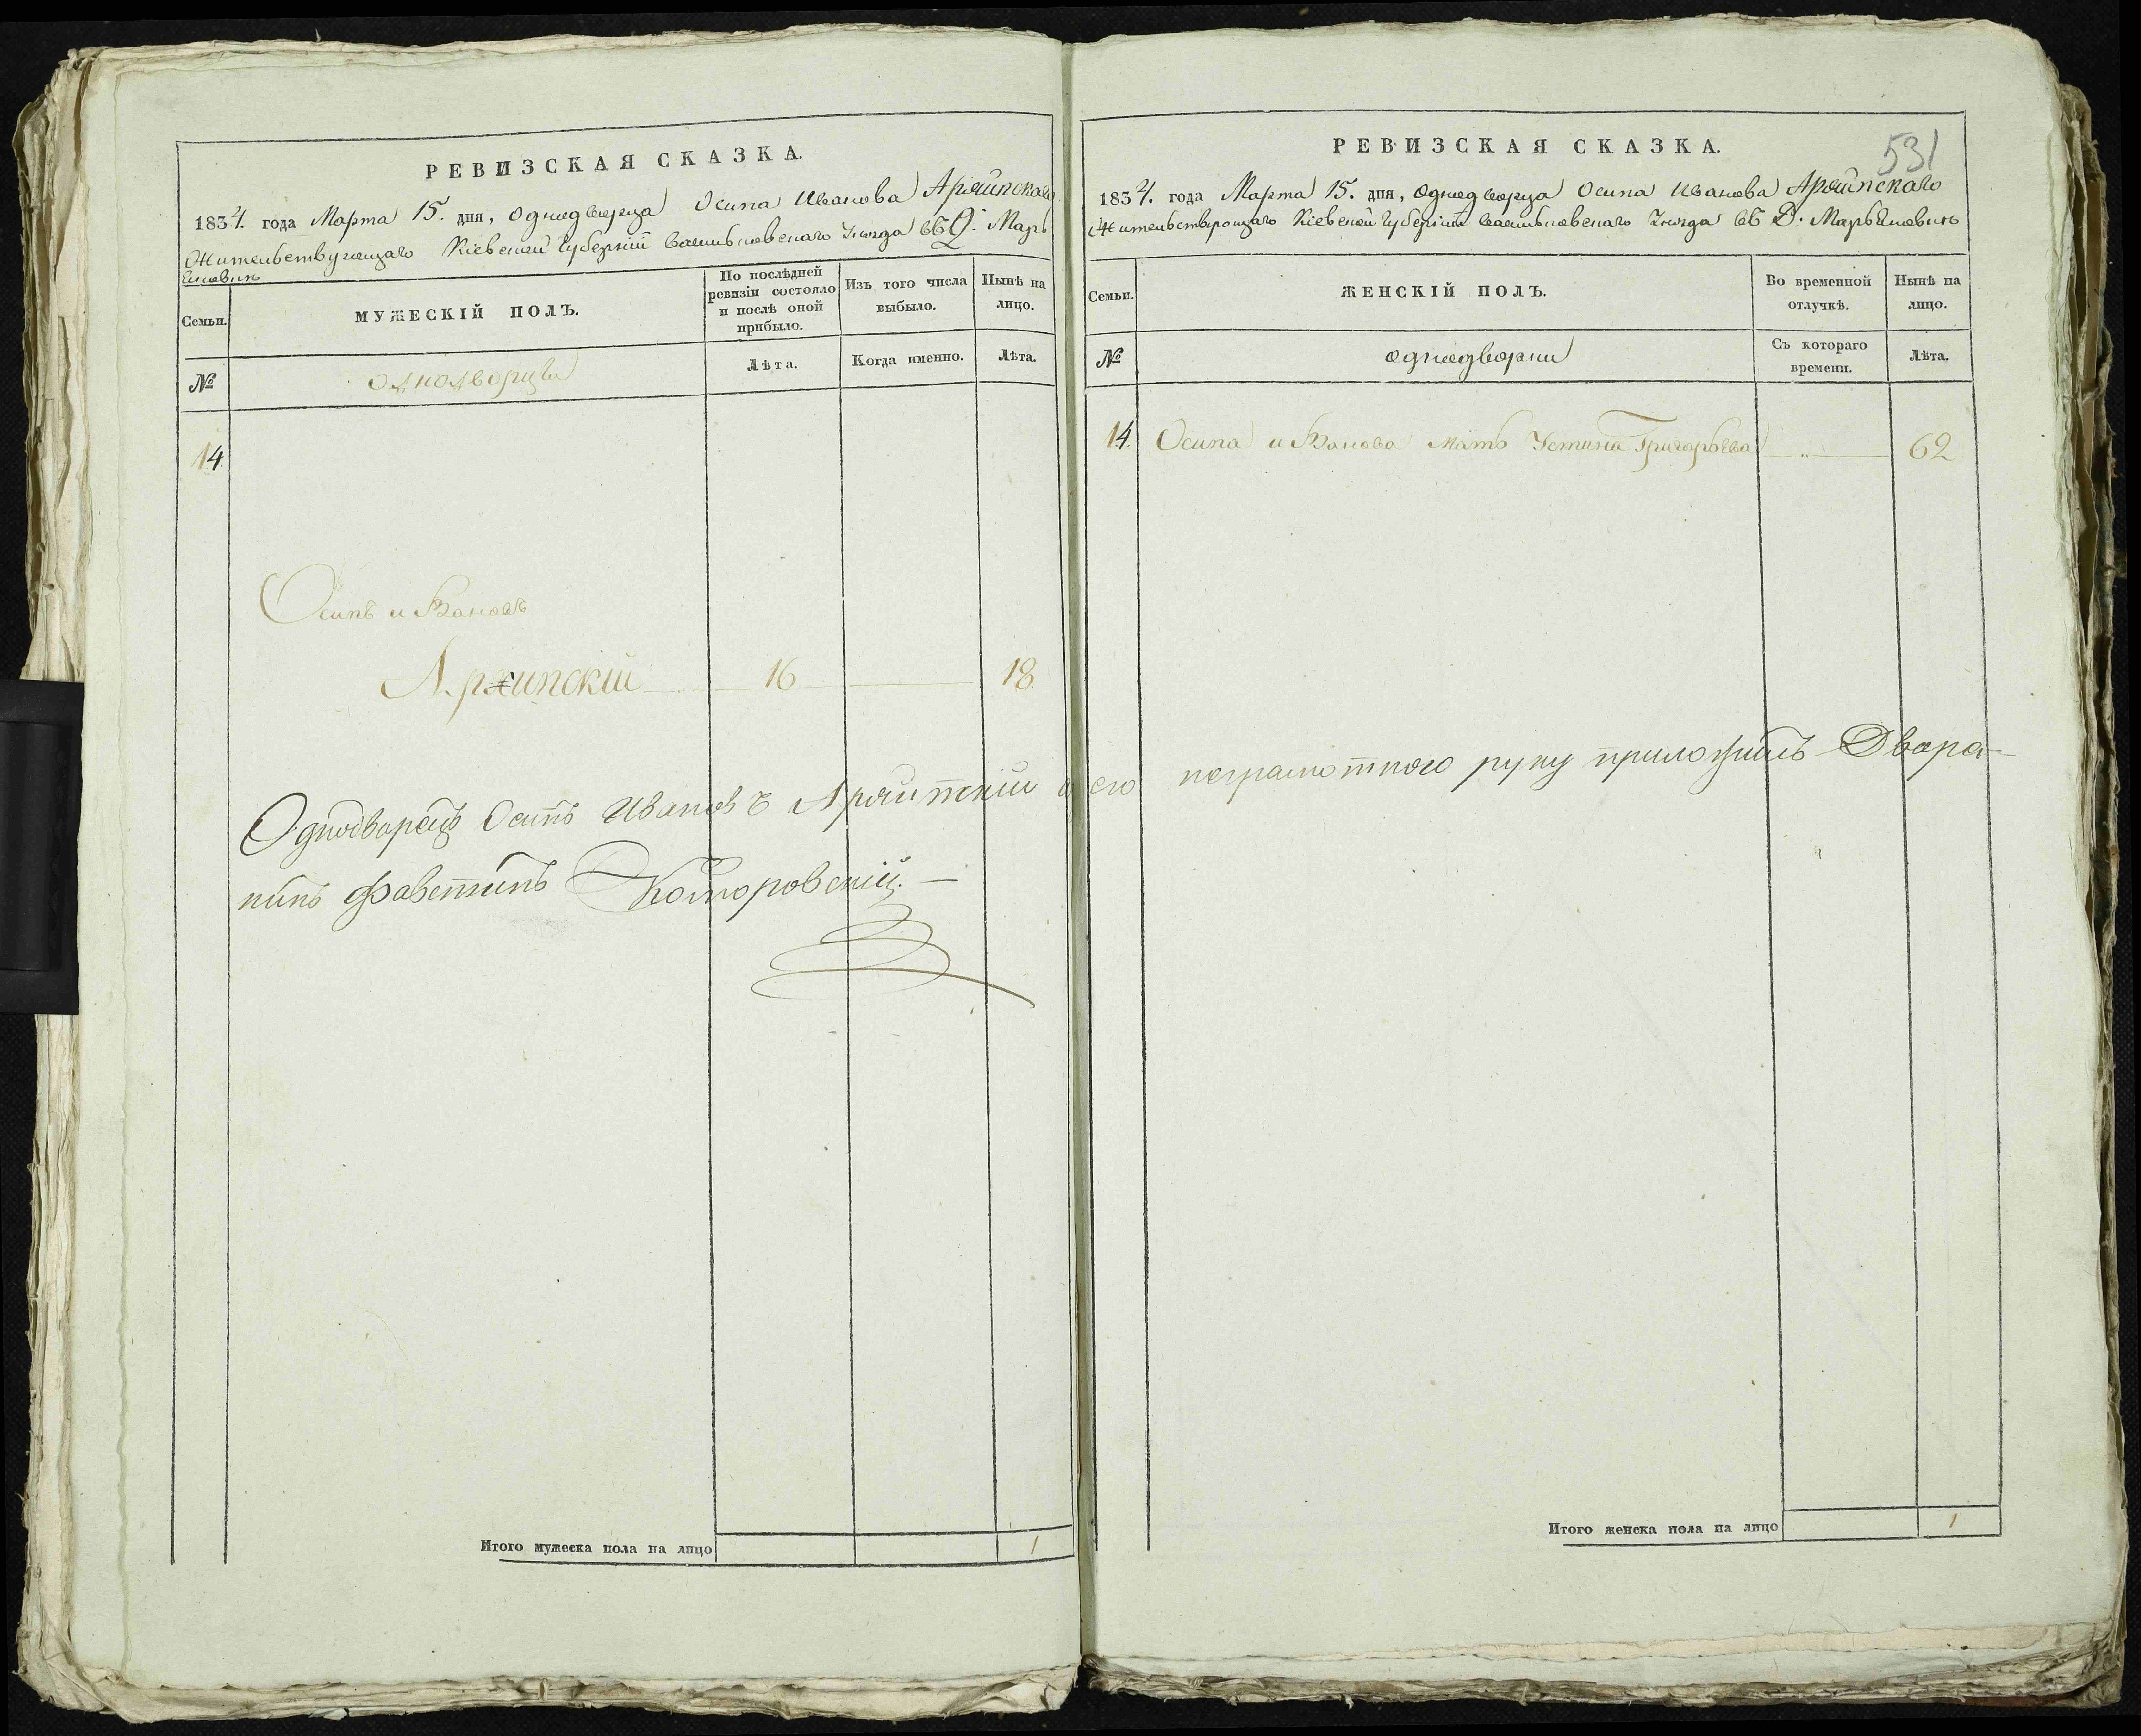 РЕВИЗСКАЯ СКАЗКА.
1834. года Марта 15. дня, однодворца Осипа Иванова
Жительствующаго Кіевской Губерніи Васильковскаго Уѣзда въ Д. Марь
яновкѣ
Семьи.
МУЖЕСКІЙ ПОЛЪ.
По послѣдней ревизіи состояло и послѣ оной прибыло.
Изъ того числа выбыло.
Нынѣ на лицо.
№
однодворцы
Лѣта.
Когда именно.
Лѣта.
14
Осипъ иВановъ
16 18
Однодворецъ Осипъ Ивановъ а его
нинъ Коморовскій. —
Итого мужеска пола на лицо 1
531
РЕВИЗСКАЯ СКАЗКА.
1834. года Марта 15. дня, однодворца Осипа Иванова
Жительствующаго Кіевской Губерніи Васильковскаго Уѣзда въ Д. Марьяновкѣ
Семьи.
ЖЕНСКІЙ ПОЛЪ.
Во временной отлучкѣ.
Нынѣ на лицо.
№
однодворки
Съ котораго времени.
Лѣта.
14. Осипа иВанова мать Устина Григорьева „ 62
неграмотного руку приложилъ Дворя-
Итого женска пола на лицо 1